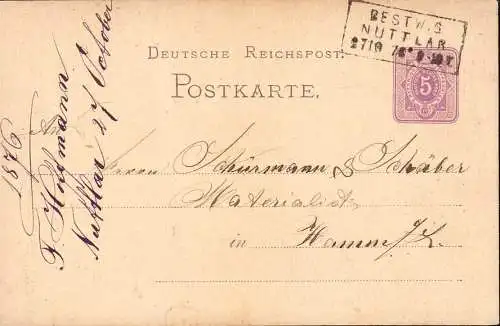 BESTWIG
NUTTLAR
27 10 76
DEUTSCHE REICHSPOST.
POSTKARTE.
5
An
Herrn Schürmann & Schäber
Materialist
in Hamm
1876
F Hüsmann
Nuttlar 27 October